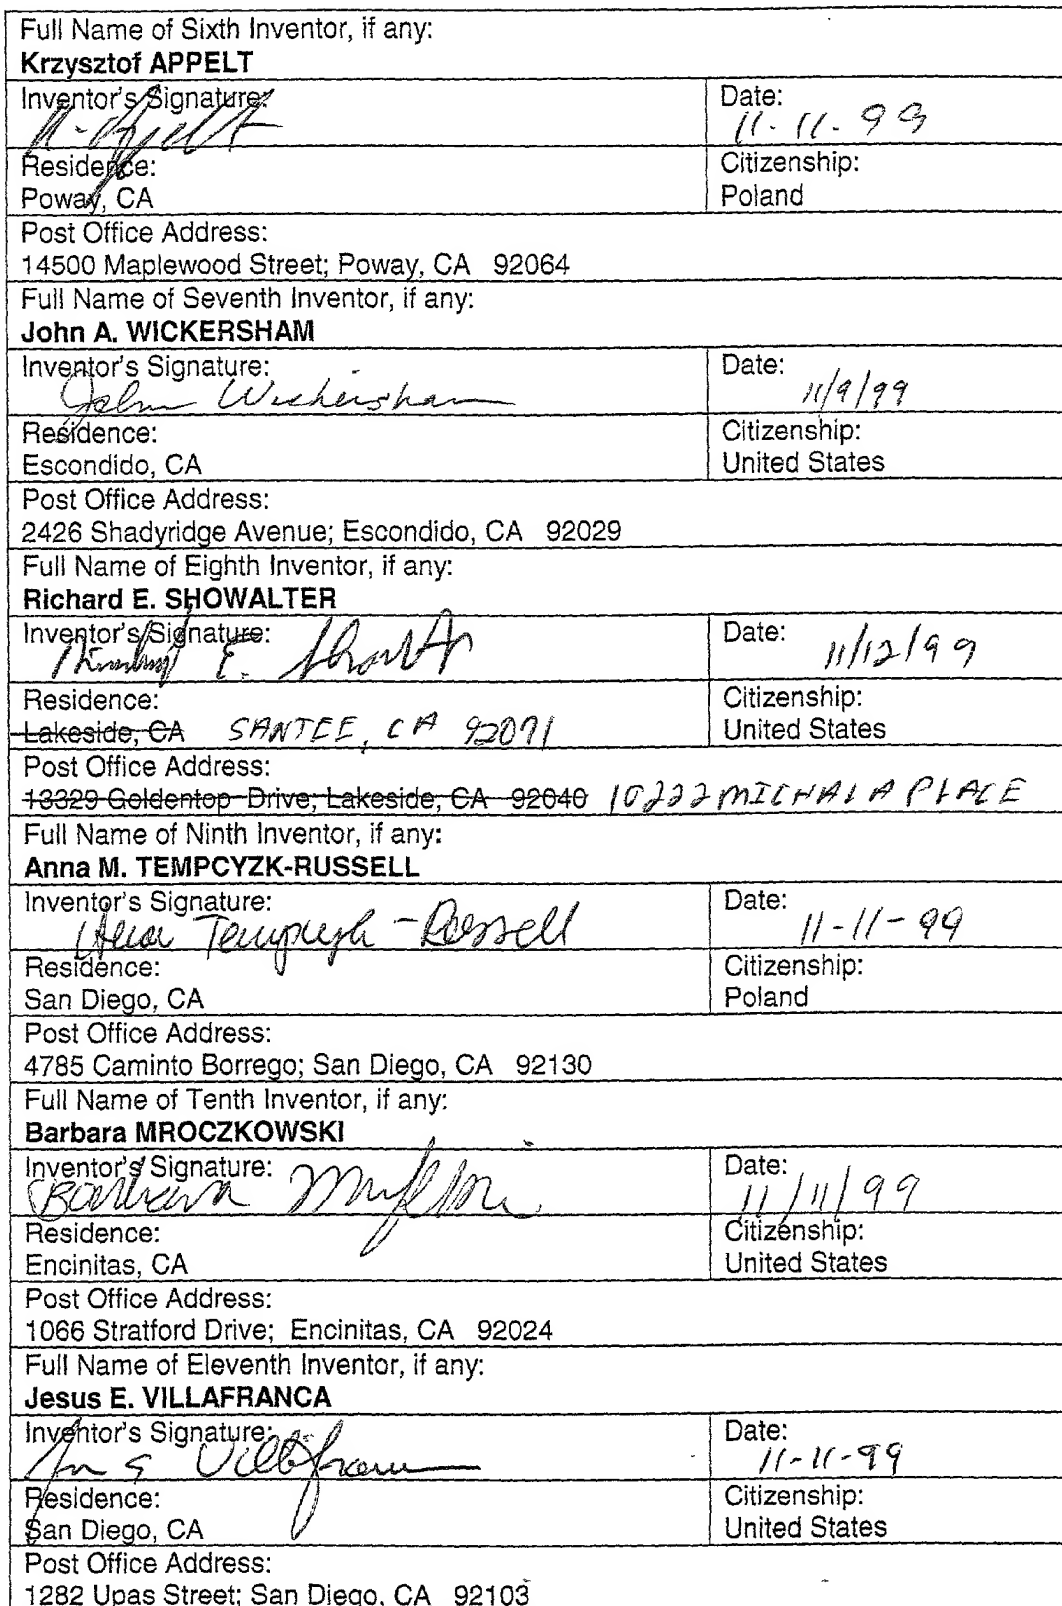 Full Name of Sixth Inventor, if any:
Krzysztof APPELT
Inventor's Signature: Date:
K. Appelt 11-11-99
Residence: Citizenship:
Poway, CA Poland
Post Office Address:
14500 Maplewood Street; Poway, CA 92064
Full Name of Seventh Inventor, if any:
John A. WICKERSHAM
Inventor's Signature: Date:
John Wickersham 11/9/99
Residence: Citizenship:
Escondido, CA United States
Post Office Address:
2426 Shadyridge Avenue; Escondido, CA 92029
Full Name of Eighth Inventor, if any:
Richard E. SHOWALTER
Inventor's Signature: Date:
E. 11/12/99
Residence: Citizenship:
Lakeside, CA SANTEE, CA 92071 United States
Post Office Address:
13329 Goldentop Drive; Lakeside, CA 92040 10222 MICHALA PLACE
Full Name of Ninth Inventor, if any:
Anna M. TEMPCYZK-RUSSELL
Inventor's Signature: Date:
Anna Tempczyk-Russell 11-11-99
Residence: Citizenship:
San Diego, CA Poland
Post Office Address:
4785 Caminto Borrego; San Diego, CA 92130
Full Name of Tenth Inventor, if any:
Barbara MROCZKOWSKI
Inventor's Signature: Date:
Barbara 11/11/99
Residence: Citizenship:
Encinitas, CA United States
Post Office Address:
1066 Stratford Drive; Encinitas, CA 92024
Full Name of Eleventh Inventor, if any:
Jesus E. VILLAFRANCA
Inventor's Signature: Date:
E Villafranca 11-11-99
Residence: Citizenship:
San Diego, CA United States
Post Office Address:
1282 Upas Street; San Diego, CA 92103